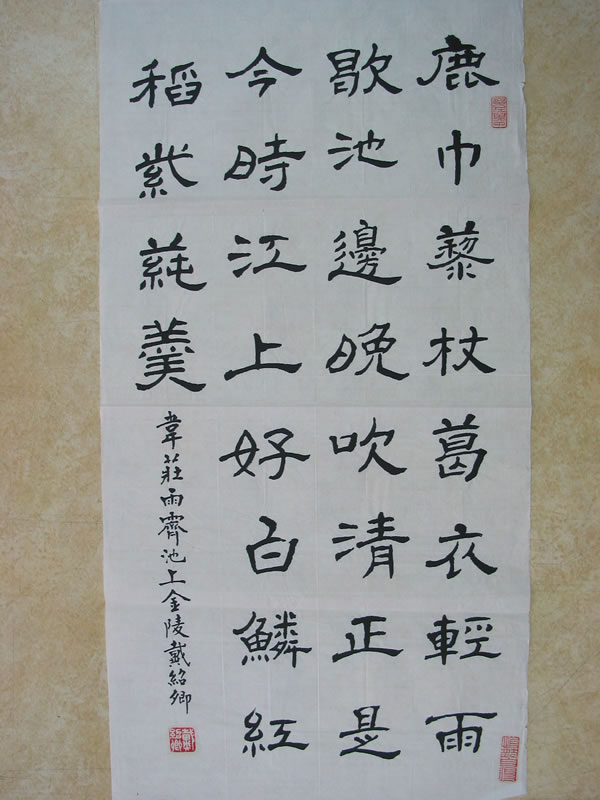 鹿巾藜杖葛衣輕雨
歇池邊晚吹清正是
今時江上好白鱗紅
稻紫蒓羹
韋莊雨霽池上金陵戴紹卿